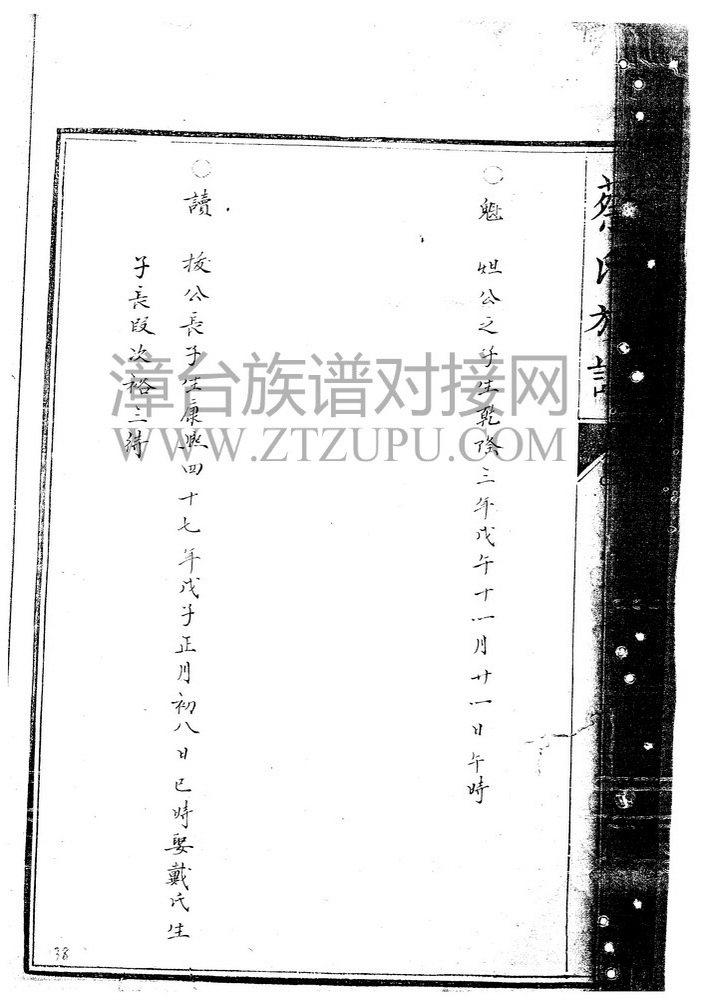 蔡氏族譜
○魁 炟公之子生乾隆三年戊午十一月廿一日午時
○讀 拔公長子生康熙四十七年戊子正月初八日巳時娶戴氏生
子長段次裕三待
漳台族谱对接网
WWW.ZTZUPU.COM
38